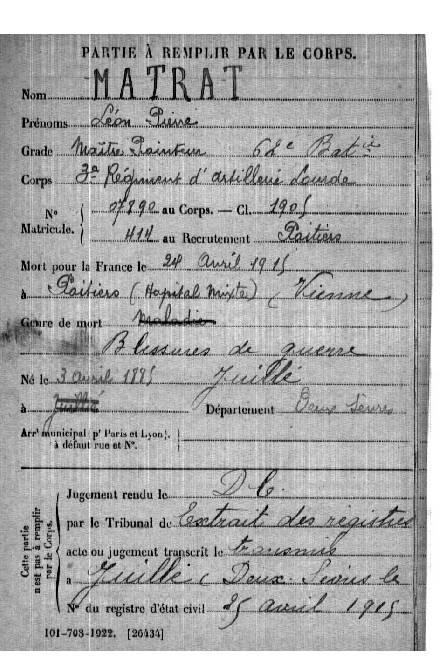 PARTIE À REMPLIR PAR LE CORPS.
Nom MATRAT
Prénoms Léon Pierre
Grade Maître Pointeur 62e Batie
Corps 3e Régiment d'artillerie Lourde
N° Matricule. { 07890 au Corps. — Cl. 1905
414 au Recrutement Poitiers
Mort pour la France le 24 Avril 1915
à Poitiers (Hopital Mixte) (Vienne)
Genre de mort Maladie
Blessures de guerre
Né le 3 avril 1885 Juillé
à Juillé Département Deux Sèvres
Arrt municipal (pr Paris et Lyon), à défaut rue et N°.
Cette partie n'est pas à remplir par le Corps.
Jugement rendu le D C.
par le Tribunal de Extrait des registres
acte ou jugement transcrit le transmis
à Juillé (Deux-Sèvres le
N° du registre d'état civil 25 avril 1915
101-708-1922. [26434]